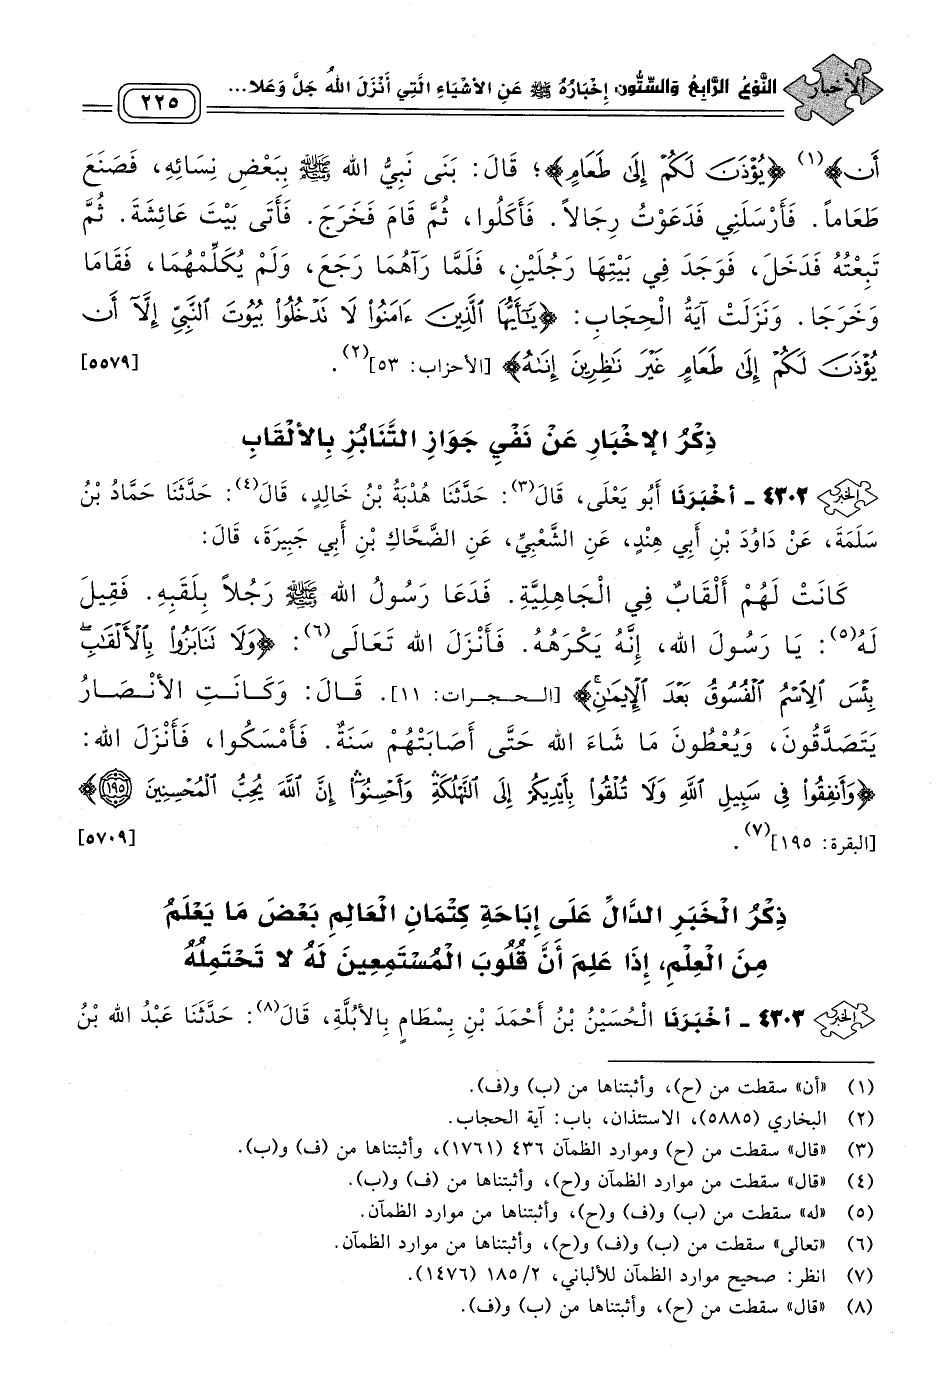 الأخبار النَّوْعُ الرَّابِعُ وَالسِّتُّون إِخْبَارُهُ ﷺ عَنِ الأَشْيَاءِ الَّتِي أَنْزَلَ اللهُ جَلَّ وَعَلا...
٢٢٥
أَن﴾(١) ﴿يُؤْذَنَ لَكُمْ إِلَىٰ طَعَامٍ﴾؛ قَالَ: بَنَى نَبِيُّ الله ﷺ بِبَعْضِ نِسَائِهِ، فَصَنَعَ
طَعَاماً. فَأَرْسَلَنِي فَدَعَوْتُ رِجَالاً. فَأَكَلُوا، ثُمَّ قَامَ فَخَرَجَ. فَأَتَى بَيْتَ عَائِشَةَ. ثُمَّ
تَبِعْتُهُ فَدَخَلَ، فَوَجَدَ فِي بَيْتِهَا رَجُلَيْنِ، فَلَمَّا رَآهُمَا رَجَعَ، وَلَمْ يُكَلِّمْهُمَا، فَقَامَا
وَخَرَجَا. وَنَزَلَتْ آيَةُ الْحِجَابِ: ﴿يَٰٓأَيُّهَا ٱلَّذِينَ ءَامَنُوا۟ لَا تَدْخُلُوا۟ بُيُوتَ ٱلنَّبِىِّ إِلَّآ أَن
يُؤْذَنَ لَكُمْ إِلَىٰ طَعَامٍ غَيْرَ نَٰظِرِينَ إِنَىٰهُ﴾ [الأحزاب: ٥٣](٢). [٥٥٧٩]
ذِكْرُ الإِخْبَارِ عَنْ نَفْيِ جَوَازِ التَّنَابُزِ بِالأَلْقَابِ
الخبر ٤٣٠٢ - أَخْبَرَنَا أَبُو يَعْلَى، قَالَ(٣): حَدَّثَنَا هُدْبَةُ بْنُ خَالِدٍ، قَالَ(٤): حَدَّثَنَا حَمَّادُ بْنُ
سَلَمَةَ، عَنْ دَاوُدَ بْنِ أَبِي هِنْدٍ، عَنِ الشَّعْبِيِّ، عَنِ الضَّحَّاكِ بْنِ أَبِي جَبِيرَةَ، قَالَ:
كَانَتْ لَهُمْ أَلْقَابٌ فِي الْجَاهِلِيَّةِ. فَدَعَا رَسُولُ الله ﷺ رَجُلاً بِلَقَبِهِ. فَقِيلَ
لَهُ(٥): يَا رَسُولَ الله، إِنَّهُ يَكْرَهُهُ. فَأَنْزَلَ الله تَعَالَى(٦): ﴿وَلَا تَنَابَزُوا۟ بِٱلْأَلْقَٰبِ ۖ
بِئْسَ ٱلِٱسْمُ ٱلْفُسُوقُ بَعْدَ ٱلْإِيمَٰنِ ۚ﴾ [الحجرات: ١١]. قَالَ: وَكَانَتِ الأَنْصَارُ
يَتَصَدَّقُونَ، وَيُعْطُونَ مَا شَاءَ الله حَتَّى أَصَابَتْهُمْ سَنَةٌ. فَأَمْسَكُوا، فَأَنْزَلَ الله:
﴿وَأَنفِقُوا۟ فِى سَبِيلِ ٱللَّهِ وَلَا تُلْقُوا۟ بِأَيْدِيكُمْ إِلَى ٱلتَّهْلُكَةِ ۛ وَأَحْسِنُوٓا۟ ۛ إِنَّ ٱللَّهَ يُحِبُّ ٱلْمُحْسِنِينَ ١٩٥﴾
[البقرة: ١٩٥](٧). [٥٧٠٩]
ذِكْرُ الْخَبَرِ الدَّالِّ عَلَى إِبَاحَةِ كِتْمَانِ الْعَالِمِ بَعْضَ مَا يَعْلَمُ
مِنَ الْعِلْمِ، إِذَا عَلِمَ أَنَّ قُلُوبَ الْمُسْتَمِعِينَ لَهُ لا تَحْتَمِلُهُ
الخبر ٤٣٠٣ - أَخْبَرَنَا الْحُسَيْنُ بْنُ أَحْمَدَ بْنِ بِسْطَامٍ بِالأُبُلَّةِ، قَالَ(٨): حَدَّثَنَا عَبْدُ الله بْنُ
(١) «أن» سقطت من (ح)، وأثبتناها من (ب) و(ف).
(٢) البخاري (٥٨٨٥)، الاستئذان، باب: آية الحجاب.
(٣) «قال» سقطت من (ح) وموارد الظمآن ٤٣٦ (١٧٦١)، وأثبتناها من (ف) و(ب).
(٤) «قال» سقطت من موارد الظمآن و(ح)، وأثبتناها من (ف) و(ب).
(٥) «له» سقطت من (ب) و(ف) و(ح)، وأثبتناها من موارد الظمآن.
(٦) «تعالى» سقطت من (ب) و(ف) و(ح)، وأثبتناها من موارد الظمآن.
(٧) انظر: صحيح موارد الظمآن للألباني، ٢/ ١٨٥ (١٤٧٦).
(٨) «قال» سقطت من (ح)، وأثبتناها من (ب) و(ف).